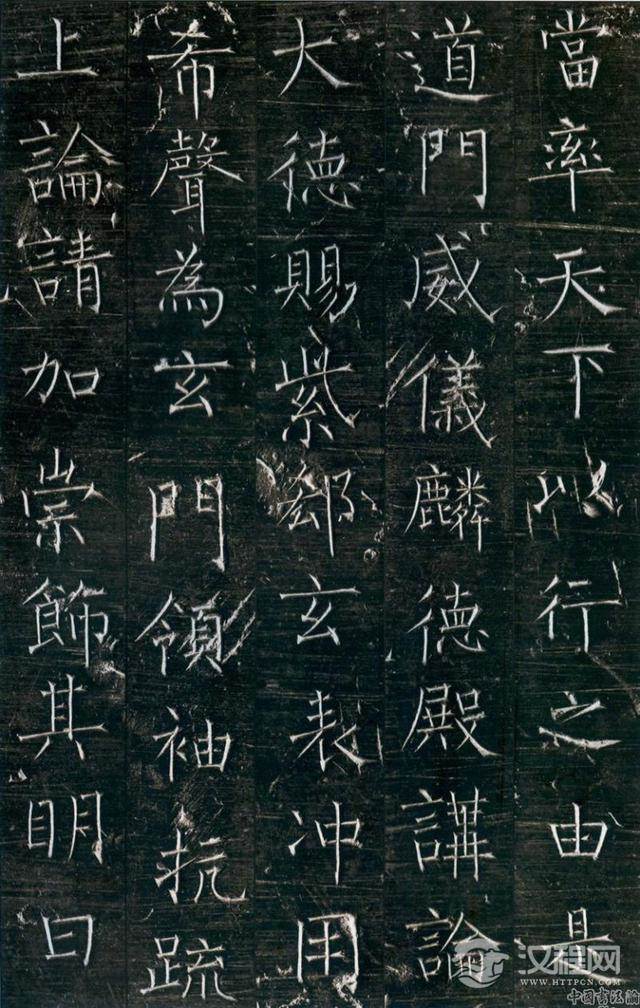 當率天下以行之由是
道門威儀麟德殿講論
大德賜紫鄒玄表冲用
希聲為玄門領袖抗疏
上論請加崇飾其明日
汉程网
WWW.HTTPCN.COM